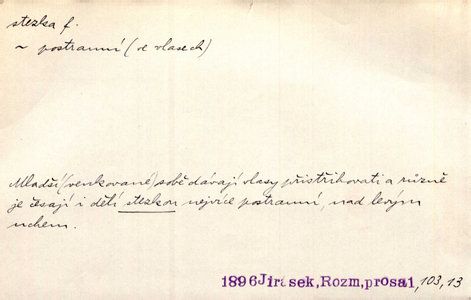 stezka f.
~ postranní (ve vlasech)
Mladší (venkované) sobě dávají vlasy přistřihovati a různě
je česají i dělí stezkou nejvíce postranní, nad levým
uchem.
1896 Jirásek, Rozm, prosa 1, 103, 13